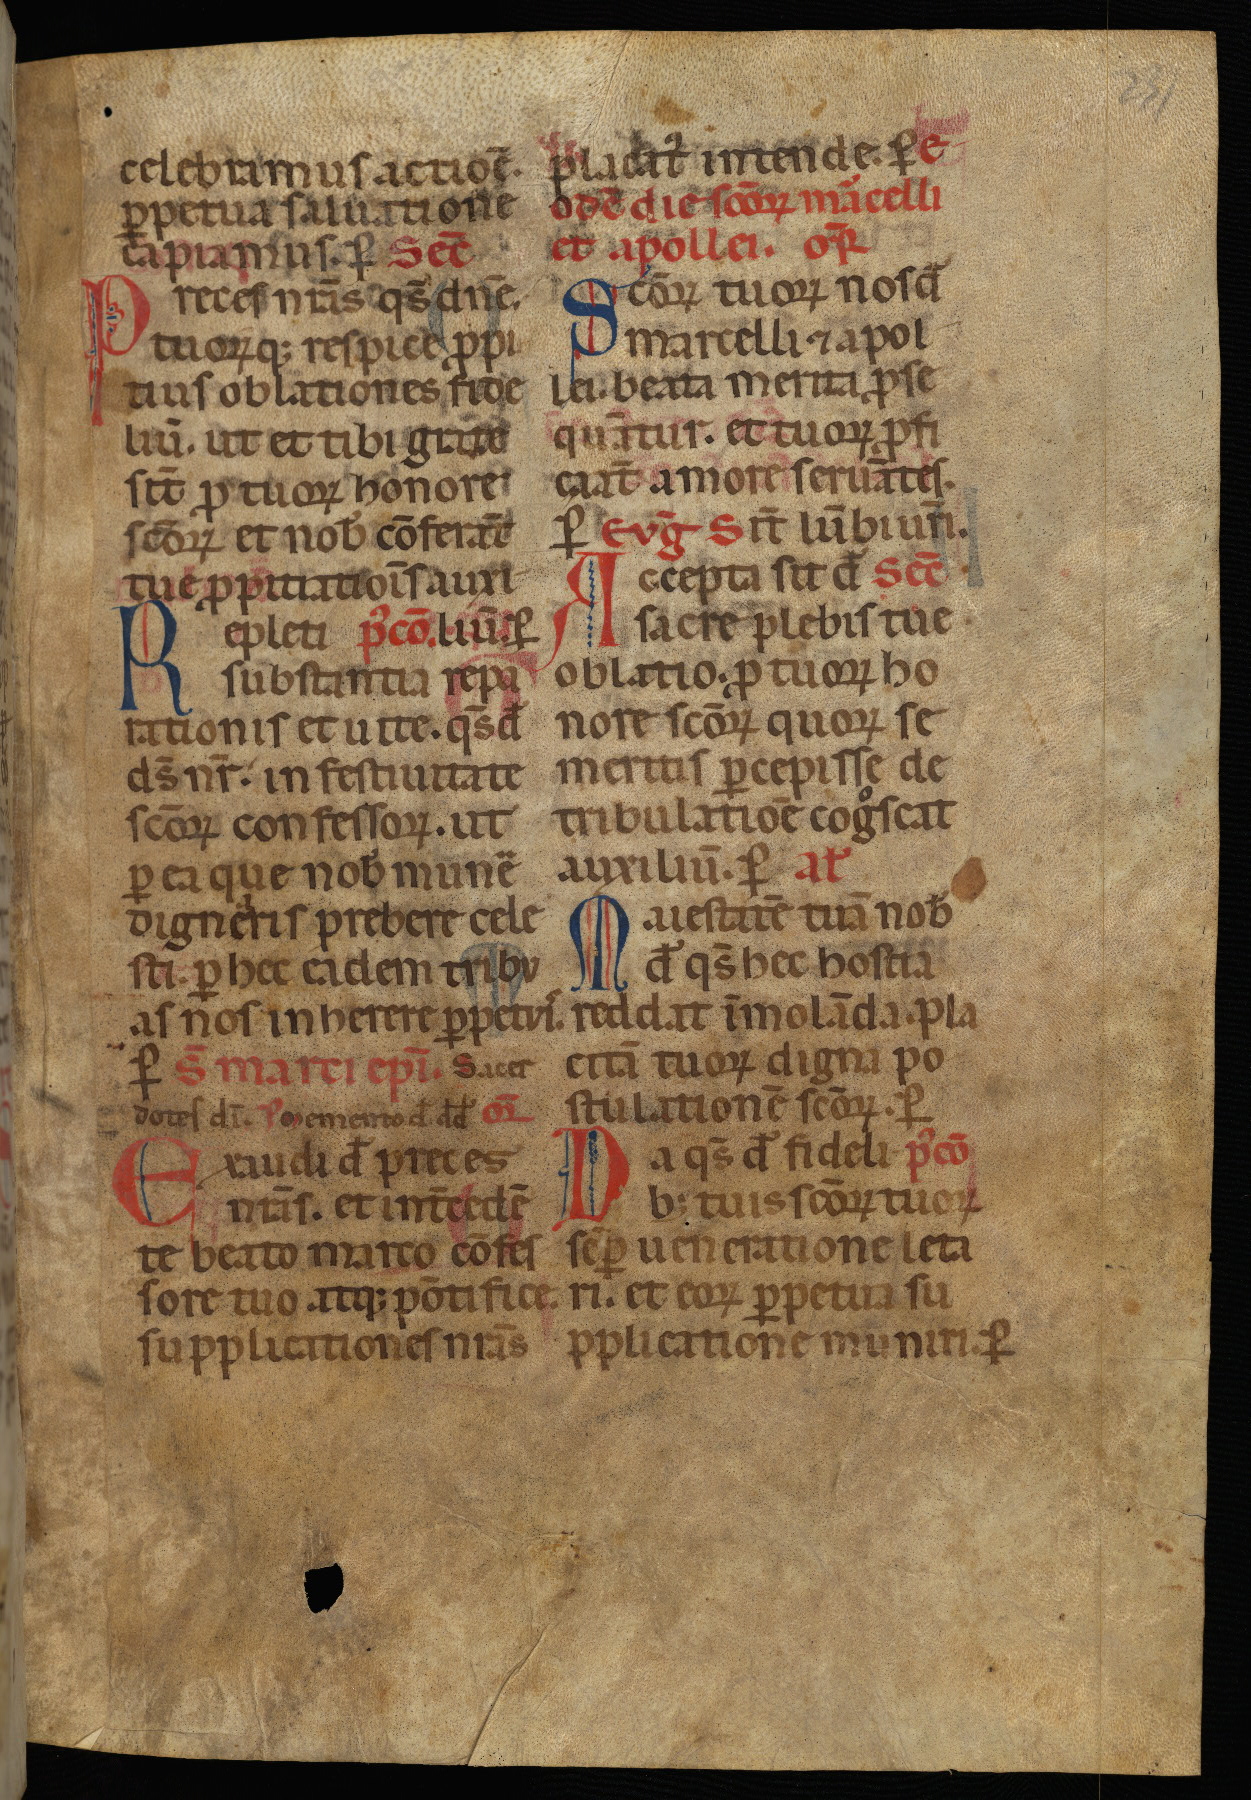 231
celebramus actioē.
ꝑpetua saluatione
capiamus. ꝑ Secͭ
Preces nr̄as q̄s dn̄e.
tuoꝝq; respice ꝓpi
tius oblationes fide
liū. ut et tibi grate
sīt ꝓ tuoꝝ honore
sc̄oꝝ et nob̄ cōferāt
tue ꝓpitiatiōis auxi
Repleti p̄cō. liū. ꝑ
substantia repa
rationis et uite. q̄s d̄
ds̄ nr̄. in festiuitate
sc̄oꝝ confessoꝝ. ut
ꝑ ea que nob̄ munē
digneris prebere cele
sti. ꝑ hec eadem tribu
as nos inherere ꝑpetuis.
ꝑ S̄ marci epī. Sacer
dotes dī. Memento d̄ dd̄ or̄
Exaudi d̄ preces
nr̄as. et int̄cedē
te beato marco cōfes
sore tuo atq; pōtifice.
supplicationes nr̄as
placat᷑ intende. ꝑ E
odē die sc̄oꝝ m̄acelli
et apollei. or̄
Sc̄oꝝ tuoꝝ nos d̄
marcelli ⁊ apol
lei. beata merita ꝓse
quāntur. et tuoꝝ ꝑfi
ciāt amore seruātes.
ꝑ Evḡ Sīt lūbi ur̄i.
Accepta sit d̄ Secͭ
sacre plebis tue
oblatio. ꝓ tuoꝝ ho
nore sc̄oꝝ quoꝝ se
meritis ꝑcepisse de
tribulatiōe cogͦscat
auxiliū. ꝑ al̄
Maiestatē tuā nob̄
d̄ q̄s hec hostia
reddat īmolāda. pla
citā tuoꝝ digna po
stulationē sc̄oꝝ. ꝑ
Da q̄s d̄ fideli p̄cō
b; tuis sc̄oꝝ tuoꝝ
sēꝑ ueneratione leta
ri. et eoꝝ ꝑpetua su
pplicatione muniri. ꝑ